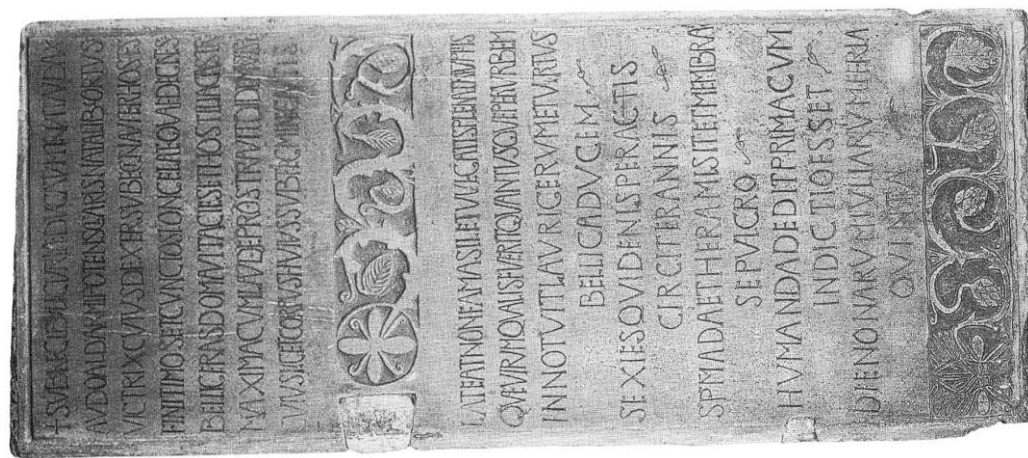 + SVB REGIBVS LIGVRIAE DVCATVM TENVIT AVDAX
AVDOALD ARMIPOTENS CLARIS NATALIBVS ORTVS
VICTRIX CVIVS DEXTER SVBEGIT NAVITER HOSTES
FINITIMOS ET CVNCTOS LONGE LATEQVE DEGENTES
BELLIGERAS DOMAVIT ACIES ET HOSTILIA CASTRA
MAXIMA CVM LAVDE PROSTRAVIT DIDIMVS ISTE
CVIVS HIC EST CORPVS HVIVS SVB TEGMINE CAVTIS
LATEAT NON FAMA SILET VVLGATIS TRIVMPHIS
QVE VIRM QVALIS FVERIT QVANTVSQVE PER VRBEM
INNOTVIT LAVRIGERVM ET VIRTVS
BELLICA DVCEM
SEXIES QVI DENIS PERACTIS
CIRCITER ANNIS
SPM AD AETHERA MISIT ET MEMBRA
SEPVLCRO
HVMANDA DEDIT PRIMA CVM
INDICTIO ESSET
DIE NONARVM IVLIARVM FERIA
QVINTA